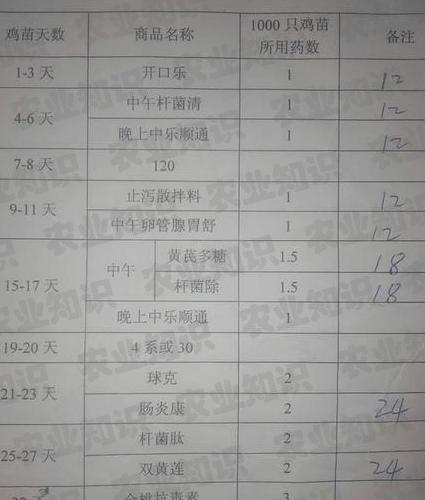 鸡苗天数 商品名称 1000 只鸡苗所用药数 备注
1-3 天 开口乐 1 12
4-6 天 中午杆菌清 1 12
晚上中乐顺通 1 12
7-8 天 120
9-11 天 止泻散拌料 1 12
中午卵管腺胃舒 1 12
15-17 天 中午 黄芪多糖 1.5 18
杆菌除 1.5 18
晚上中乐顺通 1
19-20 天 4 系或 30
21-23 天 球克 2
肠炎康 2 24
25-27 天 杆菌肽 2
双黄莲 2 24
农业知识